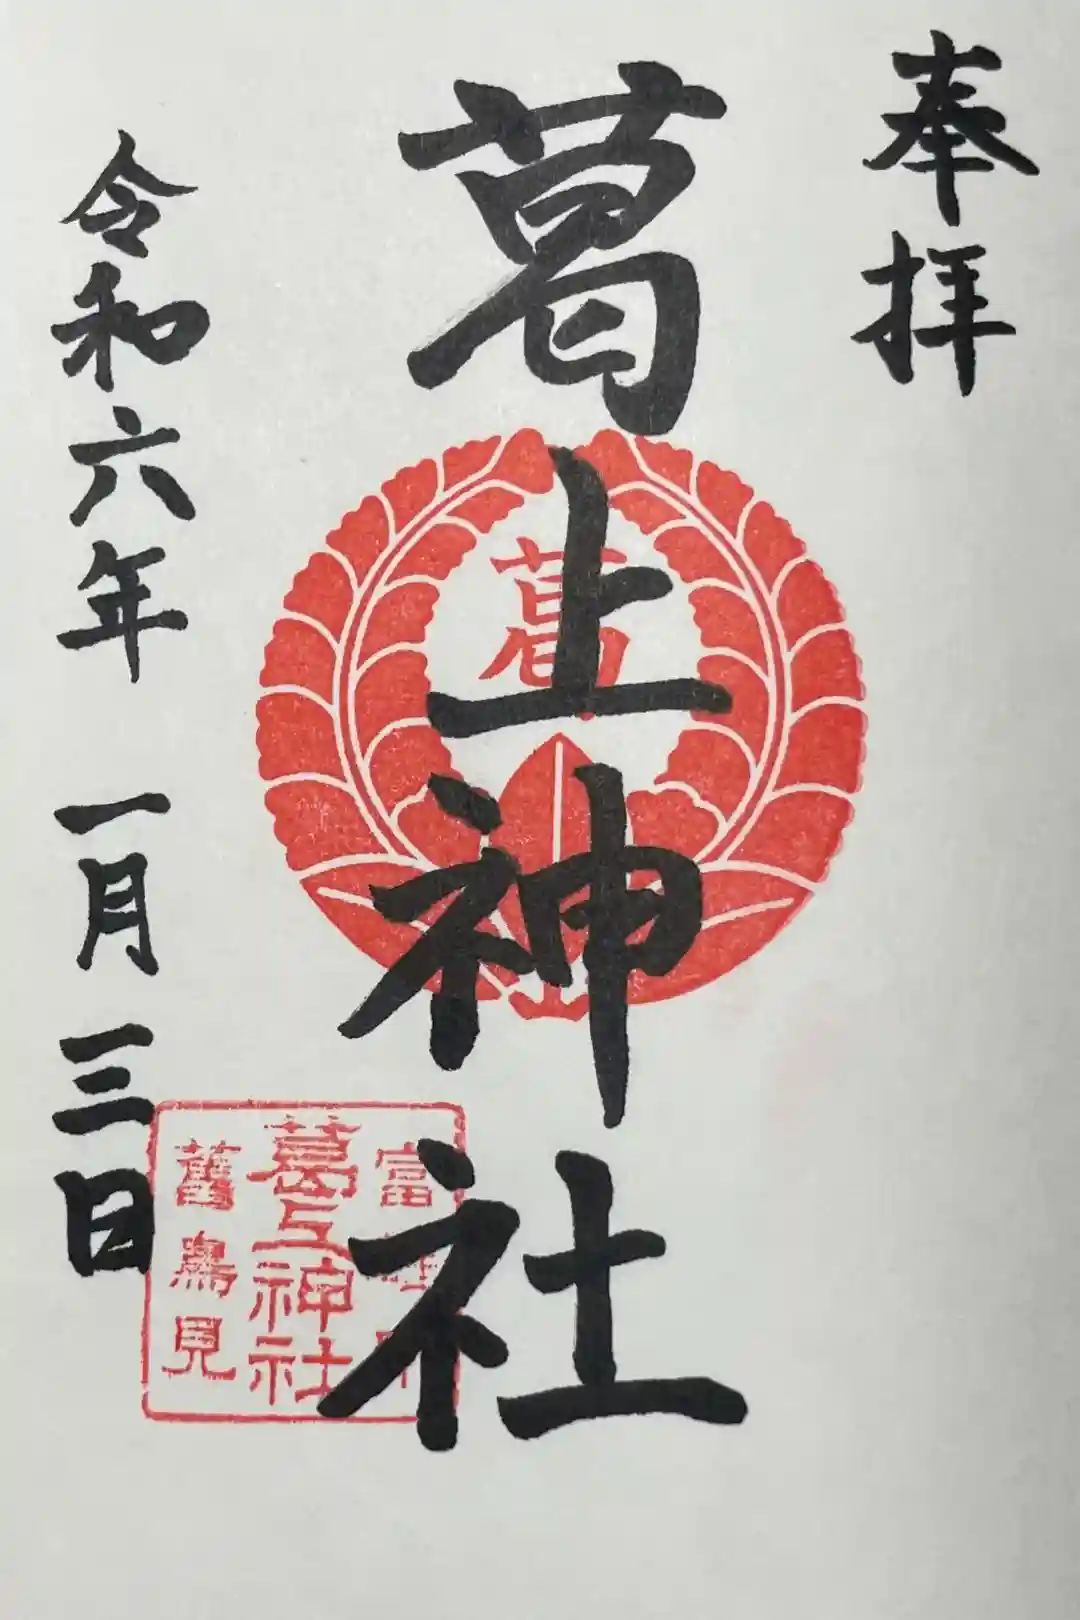 奉拝
葛上神社
葛
富
葛上神社
舊鳥見
令和六年 一月三日